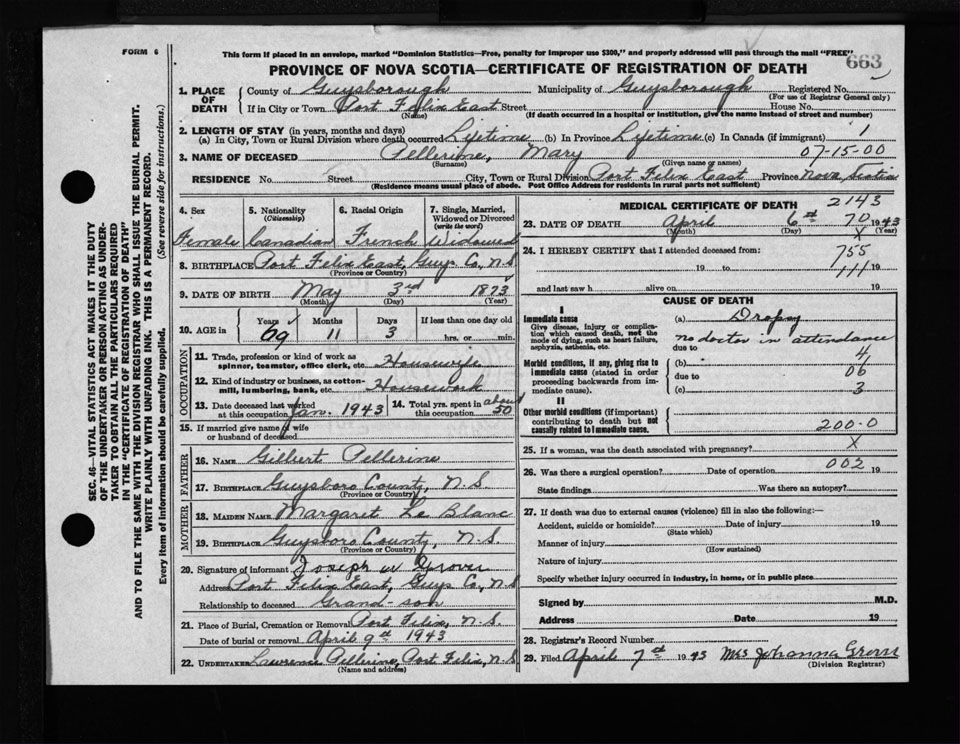 FORM 6
This form if placed in an envelope, marked "Dominion Statistics—Free, penalty for improper use $300," and properly addressed will pass through the mail "FREE"
663
PROVINCE OF NOVA SCOTIA—CERTIFICATE OF REGISTRATION OF DEATH
1. PLACE OF DEATH
County of Guysborough Municipality of Guysborough Registered No.
(For use of Registrar General only)
If in City or Town Port Felix East Street House No.
(Name) (If death occurred in a hospital or institution, give the name instead of street and number)
2. LENGTH OF STAY (in years, months and days)
(a) In City, Town or Rural Division where death occurred Lifetime (b) In Province Lifetime (c) In Canada (if immigrant) 1
3. NAME OF DECEASED Pellerine, Mary 07-15-00
(Surname) (Given name or names)
RESIDENCE No. Street City, Town or Rural Division Port Felix East Province Nova Scotia
(Residence means usual place of abode. Post Office Address for residents in rural parts not sufficient)
4. Sex 5. Nationality (Citizenship) 6. Racial Origin 7. Single, Married, Widowed or Divorced (write the word)
Female Canadian French Widowed
8. BIRTHPLACE Port Felix East, Guys Co, N.S
(Province or Country)
9. DATE OF BIRTH May 3rd 1873
(Month) (Day) (Year)
10. AGE in Years Months Days If less than one day old
69 11 3 hrs. or min.
OCCUPATION
11. Trade, profession or kind of work as spinner, teamster, office clerk, etc. Housewife
12. Kind of industry or business, as cotton-mill, lumbering, bank, etc. Housework
13. Date deceased last worked at this occupation Jan. 1943 14. Total yrs. spent in this occupation about 50
15. If married give name of wife or husband of deceased
FATHER
16. NAME Gilbert Pellerine
17. BIRTHPLACE Guysboro County, N.S.
(Province or Country)
MOTHER
18. MAIDEN NAME Margaret Le Blanc
19. BIRTHPLACE Guysboro County, N.S.
(Province or Country)
20. Signature of informant Joseph W
Address Port Felix East, Guys Co, N.S
Relationship to deceased Grand-son
21. Place of Burial, Cremation or Removal Port Felix, N.S.
Date of burial or removal April 9th 1943
22. UNDERTAKER Lawrence Pellerine, Port Felix, N.S
(Name and address)
MEDICAL CERTIFICATE OF DEATH 2143
23. DATE OF DEATH April 6th 70 1943
(Month) (Day) X (Year)
24. I HEREBY CERTIFY that I attended deceased from:
755
19 to 111 19
and last saw h alive on 19
CAUSE OF DEATH
I
Immediate cause (a) Dropsy
Give disease, injury or complication which caused death, not the mode of dying, such as heart failure, asphyxia, asthenia, etc.
no doctor in attendance
due to 4
Morbid conditions, if any, giving rise to immediate cause (stated in order proceeding backwards from immediate cause).
(b) 06
due to
(c) 3
II
Other morbid conditions (if important) contributing to death but not causally related to immediate cause.
200.0
25. If a woman, was the death associated with pregnancy? X
002
26. Was there a surgical operation? Date of operation 19
State findings Was there an autopsy?
27. If death was due to external causes (violence) fill in also the following:—
Accident, suicide or homicide? Date of injury 19
(State which)
Manner of injury
(How sustained)
Nature of injury
Specify whether injury occurred in industry, in home, or in public place
Signed by M.D.
Address Date 19
28. Registrar's Record Number
29. Filed April 7th 1943 Mrs Johanna
(Division Registrar)
SEC. 46—VITAL STATISTICS ACT MAKES IT THE DUTY
OF THE UNDERTAKER OR PERSON ACTING AS UNDER-
TAKER TO OBTAIN ALL THE PARTICULARS REQUIRED
IN THE "CERTIFICATE OF REGISTRATION OF DEATH"
AND TO FILE THE SAME WITH THE DIVISION REGISTRAR WHO SHALL ISSUE THE BURIAL PERMIT.
WRITE PLAINLY WITH UNFADING INK. THIS IS A PERMANENT RECORD.
Every item of information should be carefully supplied. (See reverse side for instructions.)